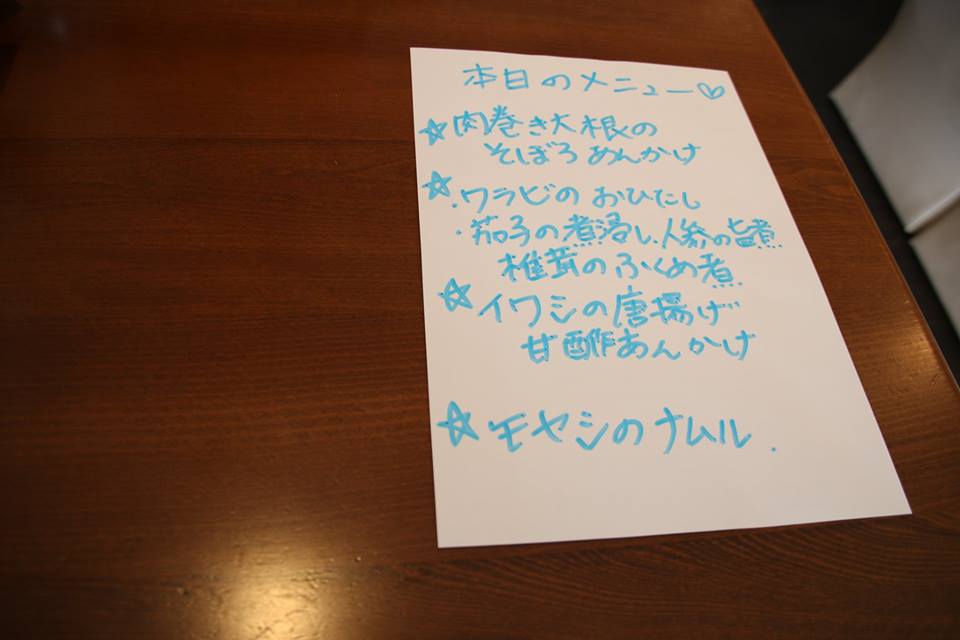 本日のメニュー♡
☆肉巻き大根の
そぼろあんかけ
☆・ワラビのおひたし
・茄子の煮浸し、人参の旨煮
椎茸のふくめ煮
☆イワシの唐揚げ
甘酢あんかけ
☆モヤシのナムル.